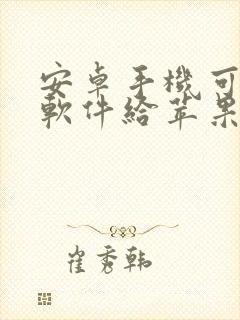 安卓手機可
軟件給苹果
崔秀韩